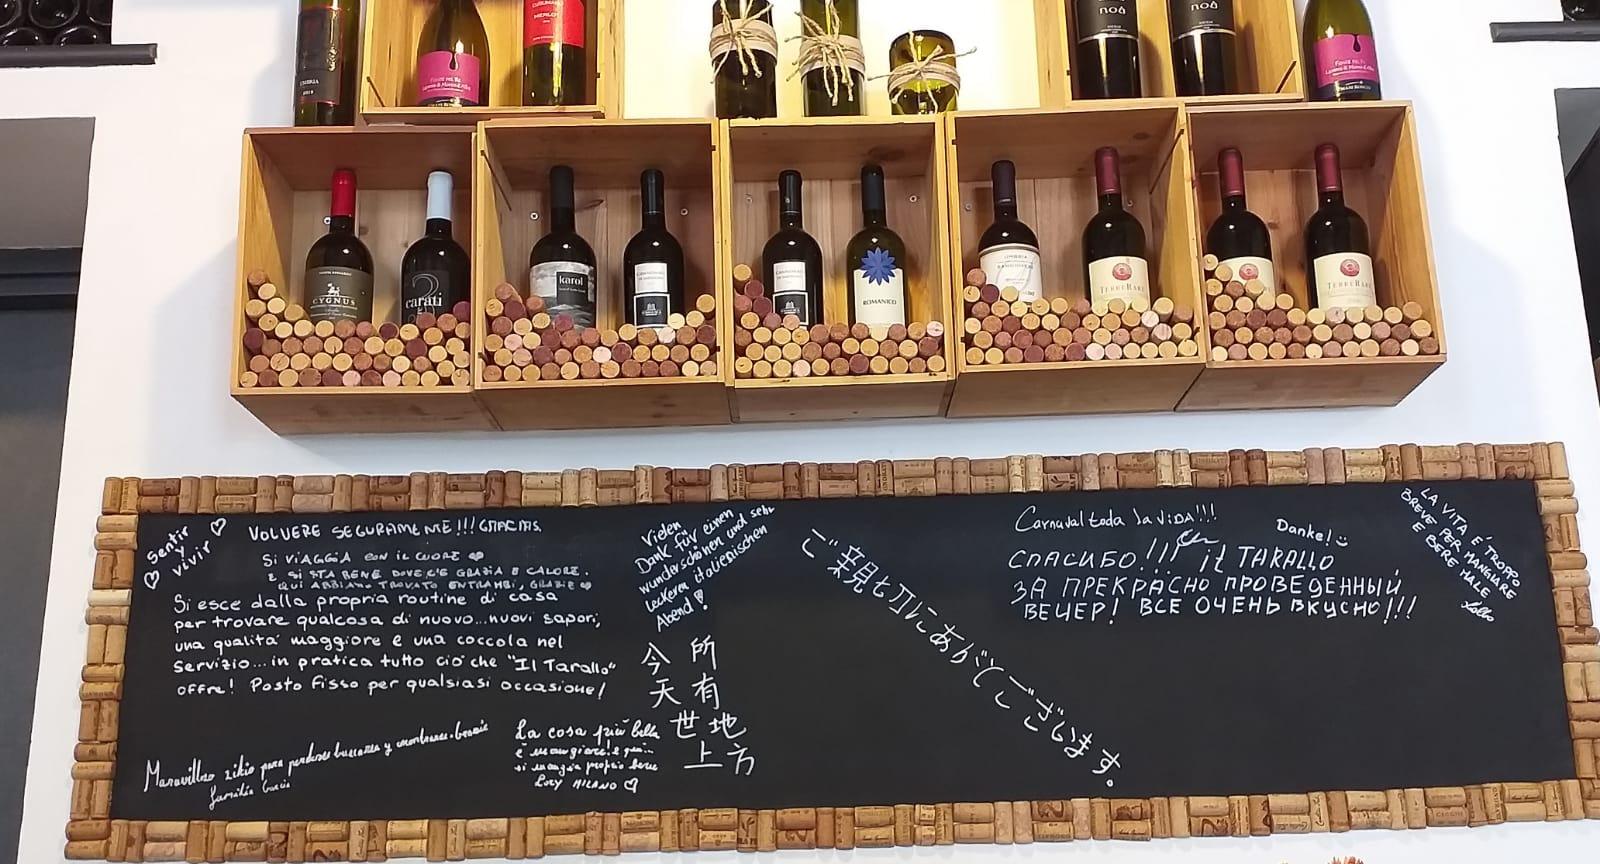 UMBRIA
Fiore del Re
MERLOT
noà
noà
Fiore del Re
CYGNUS
carati
karol
CANNONAU
CANNONAU
ROMANICO
UMBRIA
SANGIOVESE
TERRERARE
TERRERARE
Sentir
y
vivir
VOLVERE SEGURAMEME!!! GRACIAS.
SI VIAGGIA CON IL CUORE
E SI STA BENE DOVE C'È GRAZIA E CALORE.
QUI ABBIAMO TROVATO ENTRAMBI, GRAZIE
Si esce dalla propria routine di casa
per trovare qualcosa di nuovo...nuovi sapori,
una qualità maggiore e una coccola nel
servizio...in pratica tutto ciò che "Il Tarallo"
offre! Posto fisso per qualsiasi occasione!
Maravilloso sitio para perderse buscarse y encontrarse. Gracias
familia García
La cosa più bella
è mangiare! e qui..
si mangia proprio bene
LUCY MILANO
Vielen
Dank für einen
wunderschönen und sehr
leckeren italienischen
Abend!
今天世上
所有地方
ご親切にありがとうございます。
Carnaval toda la ViDA!!!
Danke!
СПАСИБО!!! il TARALLO
ЗА ПРЕКРАСНО ПРОВЕДЕННЫЙ
ВЕЧЕР! ВСЕ ОЧЕНЬ ВКУСНО!!!
LA VITA È TROPPO
BREVE PER MANGIARE
E BERE MALE